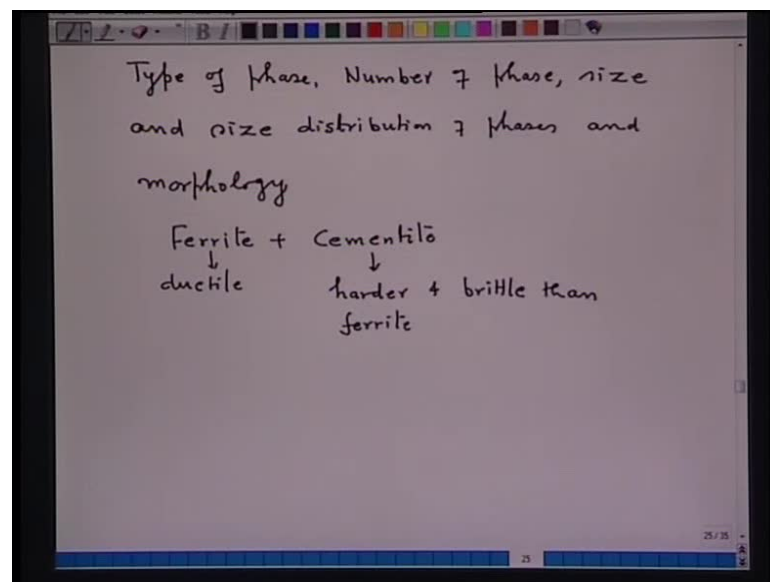 B I
Type of phase, Number of phase, size
and size distribution of phases and
morphology
Ferrite + Cementite
↓ ↓
ductile harder & brittle than
ferrite
25/35
25